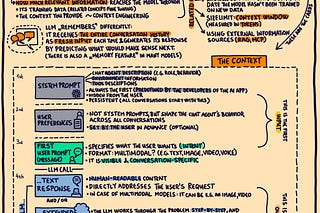 HOW MUCH RELEVANT INFORMATION REACHES THE MODEL THROUGH:
• ITS TRAINING DATA (RELATED CONCEPT: FINE TUNING)
• THE CONTEXT YOU PROVIDE → CONTEXT ENGINEERING
DATE THE MODEL HASN'T BEEN TRAINED ON NEW DATA
LLM "REMEMBERS" DIFFERENTLY:
• IT RECEIVES THE ENTIRE CONVERSATION HISTORY
AS FRESH INPUT EACH TIME & GENERATES ITS RESPONSE
BY PREDICTING WHAT WOULD MAKE SENSE NEXT.
(THERE IS ALSO A "MEMORY FEATURE" IN MOST MODELS)
SIZE LIMIT: CONTEXT WINDOW
(MEASURED IN TOKENS)
• USING EXTERNAL INFORMATION
SOURCES (RAG, MCP)
THE CONTEXT
1st
SYSTEM PROMPT
• CHAT AGENT DESCRIPTION (E.G. ROLE, BEHAVIOR)
ENVIRONMENT INFORMATION
TOOL DESCRIPTIONS
• ALWAYS THE FIRST (PREDEFINED BY THE DEVELOPERS OF THE AI APP)
• HIDDEN FROM THE USER
• PERSISTENT (ALL CONVERSATIONS START WITH THIS)
2nd
USER PREFERENCES
• NOT SYSTEM PROMPTS, BUT SHAPE THE CHAT AGENT'S BEHAVIOR
ACROSS ALL CONVERSATIONS.
• SET BY THE USER IN ADVANCE (OPTIONAL)
3rd
FIRST
USER PROMPT
(MESSAGE)
• SPECIFIES WHAT THE USER WANTS (INTENT)
• FORMAT: MULTIMODAL? (E.G. TEXT, IMAGE, VIDEO, VOICE)
• IT IS VISIBLE & CONVERSATION-SPECIFIC
THIS IS THE FIRST
INPUT
LLM CALL
4th
TEXT
RESPONSE
• HUMAN-READABLE CONTENT
• DIRECTLY ADDRESSES THE USER'S REQUEST
• IN CASE OF MULTIMODAL MODELS: IT CAN BE E.G. AN IMAGE, VIDEO
AND/OR
EXTENDED
• THE LLM WORKS THROUGH THE PROBLEM STEP-BY-STEP, AND
THIS IS